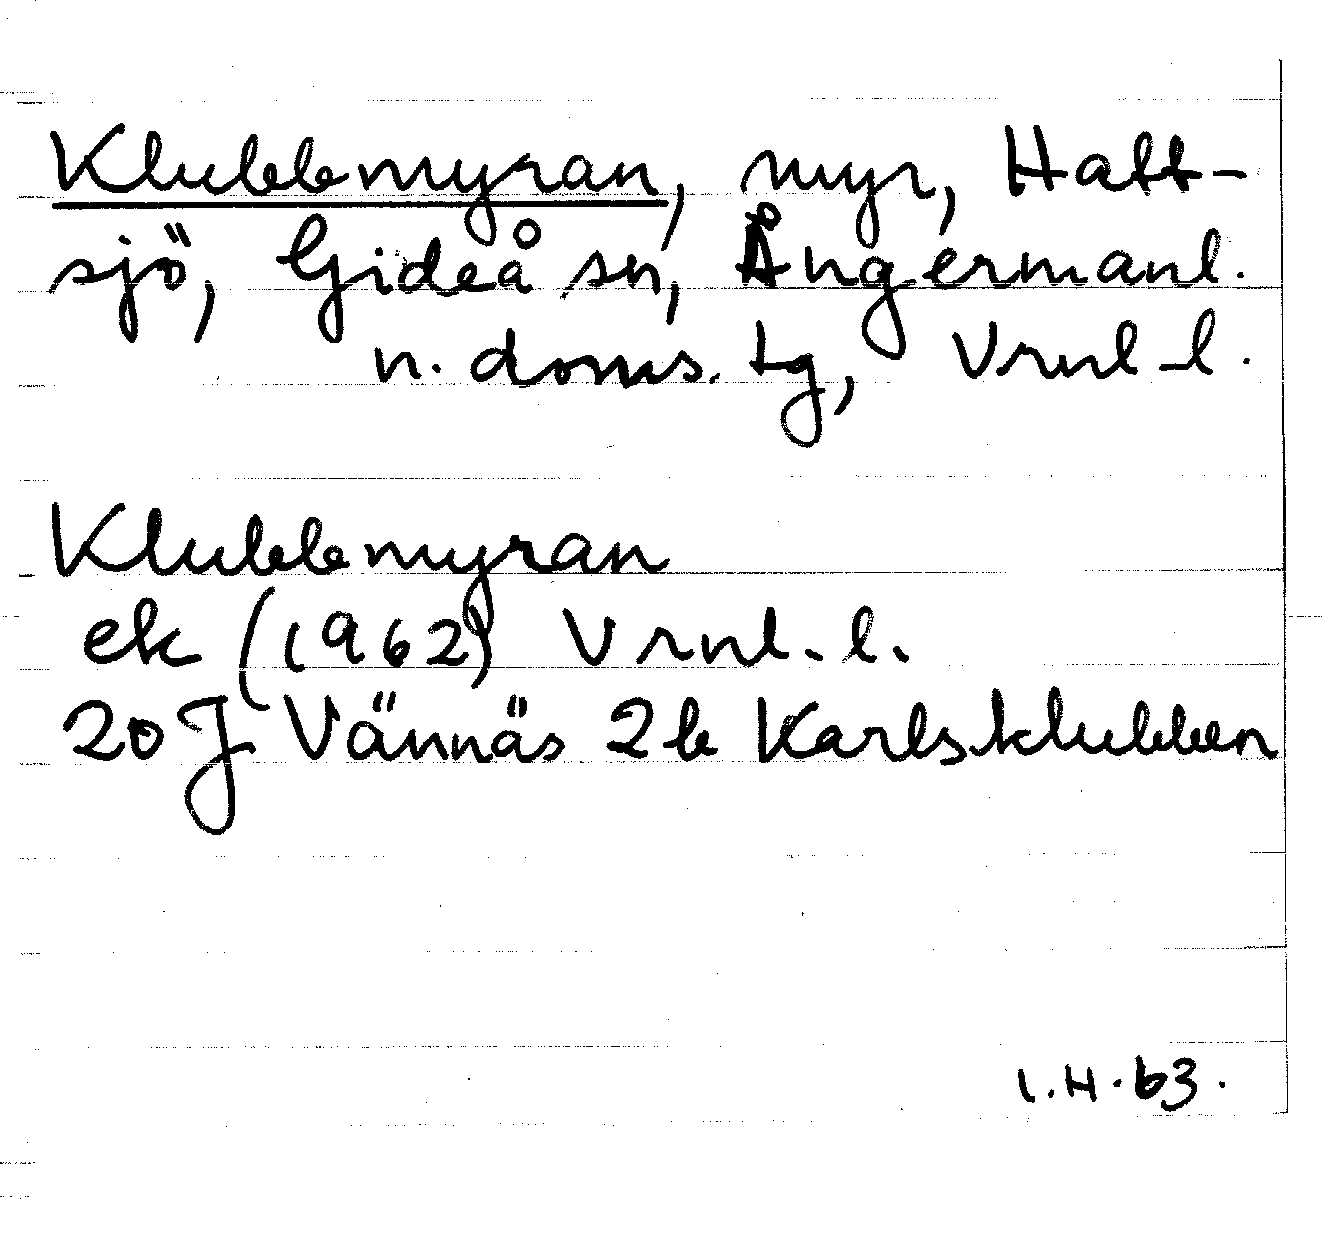 Klubbmyran, myr, Hatt-
sjö, Gideå sn, Ångermanl.
n. doms. tg, Vrnl-l.
Klubbmyran
ek (1962) Vrnl.l.
20J Vännäs 2b Karlsklubben
I.H.63.